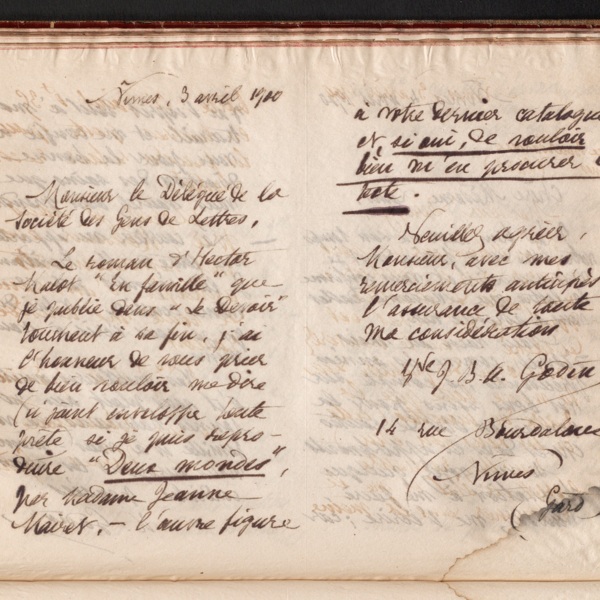 Nîmes, 3 avril 1900
Monsieur le Délégué de la
Société des Gens de Lettres,
Le roman d'Hector
Malot "En famille" que
je publie dans "Le Devoir"
tournant à sa fin, j'ai
l'honneur de vous prier
de bien vouloir me dire
(ci joint enveloppe toute
prête) si je puis repro-
duire "Deux mondes",
par Madame Jeanne
Mairet, - l'œuvre figure
à votre dernier catalogue
et, si oui, de vouloir
bien m'en procurer
note.
Veuillez agréer,
Monsieur, avec mes
remerciements anticipés
l'assurance de toute
ma considération
Vve J. B. A. Godin
14 rue Bourdaloue
Nîmes
(Gard)